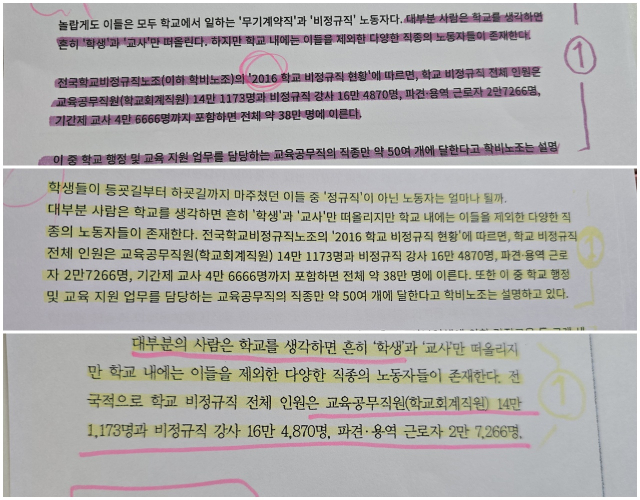 놀랍게도 이들은 모두 학교에서 일하는 '무기계약직'과 '비정규직' 노동자다. 대부분 사람은 학교를 생각하면
흔히 '학생'과 '교사'만 떠올린다. 하지만 학교 내에는 이들을 제외한 다양한 직종의 노동자들이 존재한다.
1
전국학교비정규직노조(이하 학비노조)의 '2016 학교 비정규직 현황'에 따르면, 학교 비정규직 전체 인원은
교육공무직원(학교회계직원) 14만 1173명과 비정규직 강사 16만 4870명, 파견·용역 근로자 2만7266명,
기간제 교사 4만 6666명까지 포함하면 전체 약 38만 명에 이른다.
이 중 학교 행정 및 교육 지원 업무를 담당하는 교육공무직의 직종만 약 50여 개에 달한다고 학비노조는 설명
학생들이 등굣길부터 하굣길까지 마주쳤던 이들 중 '정규직'이 아닌 노동자는 얼마나 될까.
대부분 사람은 학교를 생각하면 흔히 '학생'과 '교사'만 떠올리지만 학교 내에는 이들을 제외한 다양한 직
종의 노동자들이 존재한다. 전국학교비정규직노조의 '2016 학교 비정규직 현황'에 따르면, 학교 비정규직
1
전체 인원은 교육공무직원(학교회계직원) 14만 1173명과 비정규직 강사 16만 4870명, 파견·용역 근로
자 2만7266명, 기간제 교사 4만 6666명까지 포함하면 전체 약 38만 명에 이른다. 또한 이 중 학교 행정
및 교육 지원 업무를 담당하는 교육공무직의 직종만 약 50여 개에 달한다고 학비노조는 설명하고 있다.
대부분의 사람은 학교를 생각하면 흔히 '학생'과 '교사'만 떠올리지
만 학교 내에는 이들을 제외한 다양한 직종의 노동자들이 존재한다. 전
1
국적으로 학교 비정규직 전체 인원은 교육공무직원(학교회계직원) 14만
1,173명과 비정규직 강사 16만 4,870명, 파견·용역 근로자 2만 7,266명,